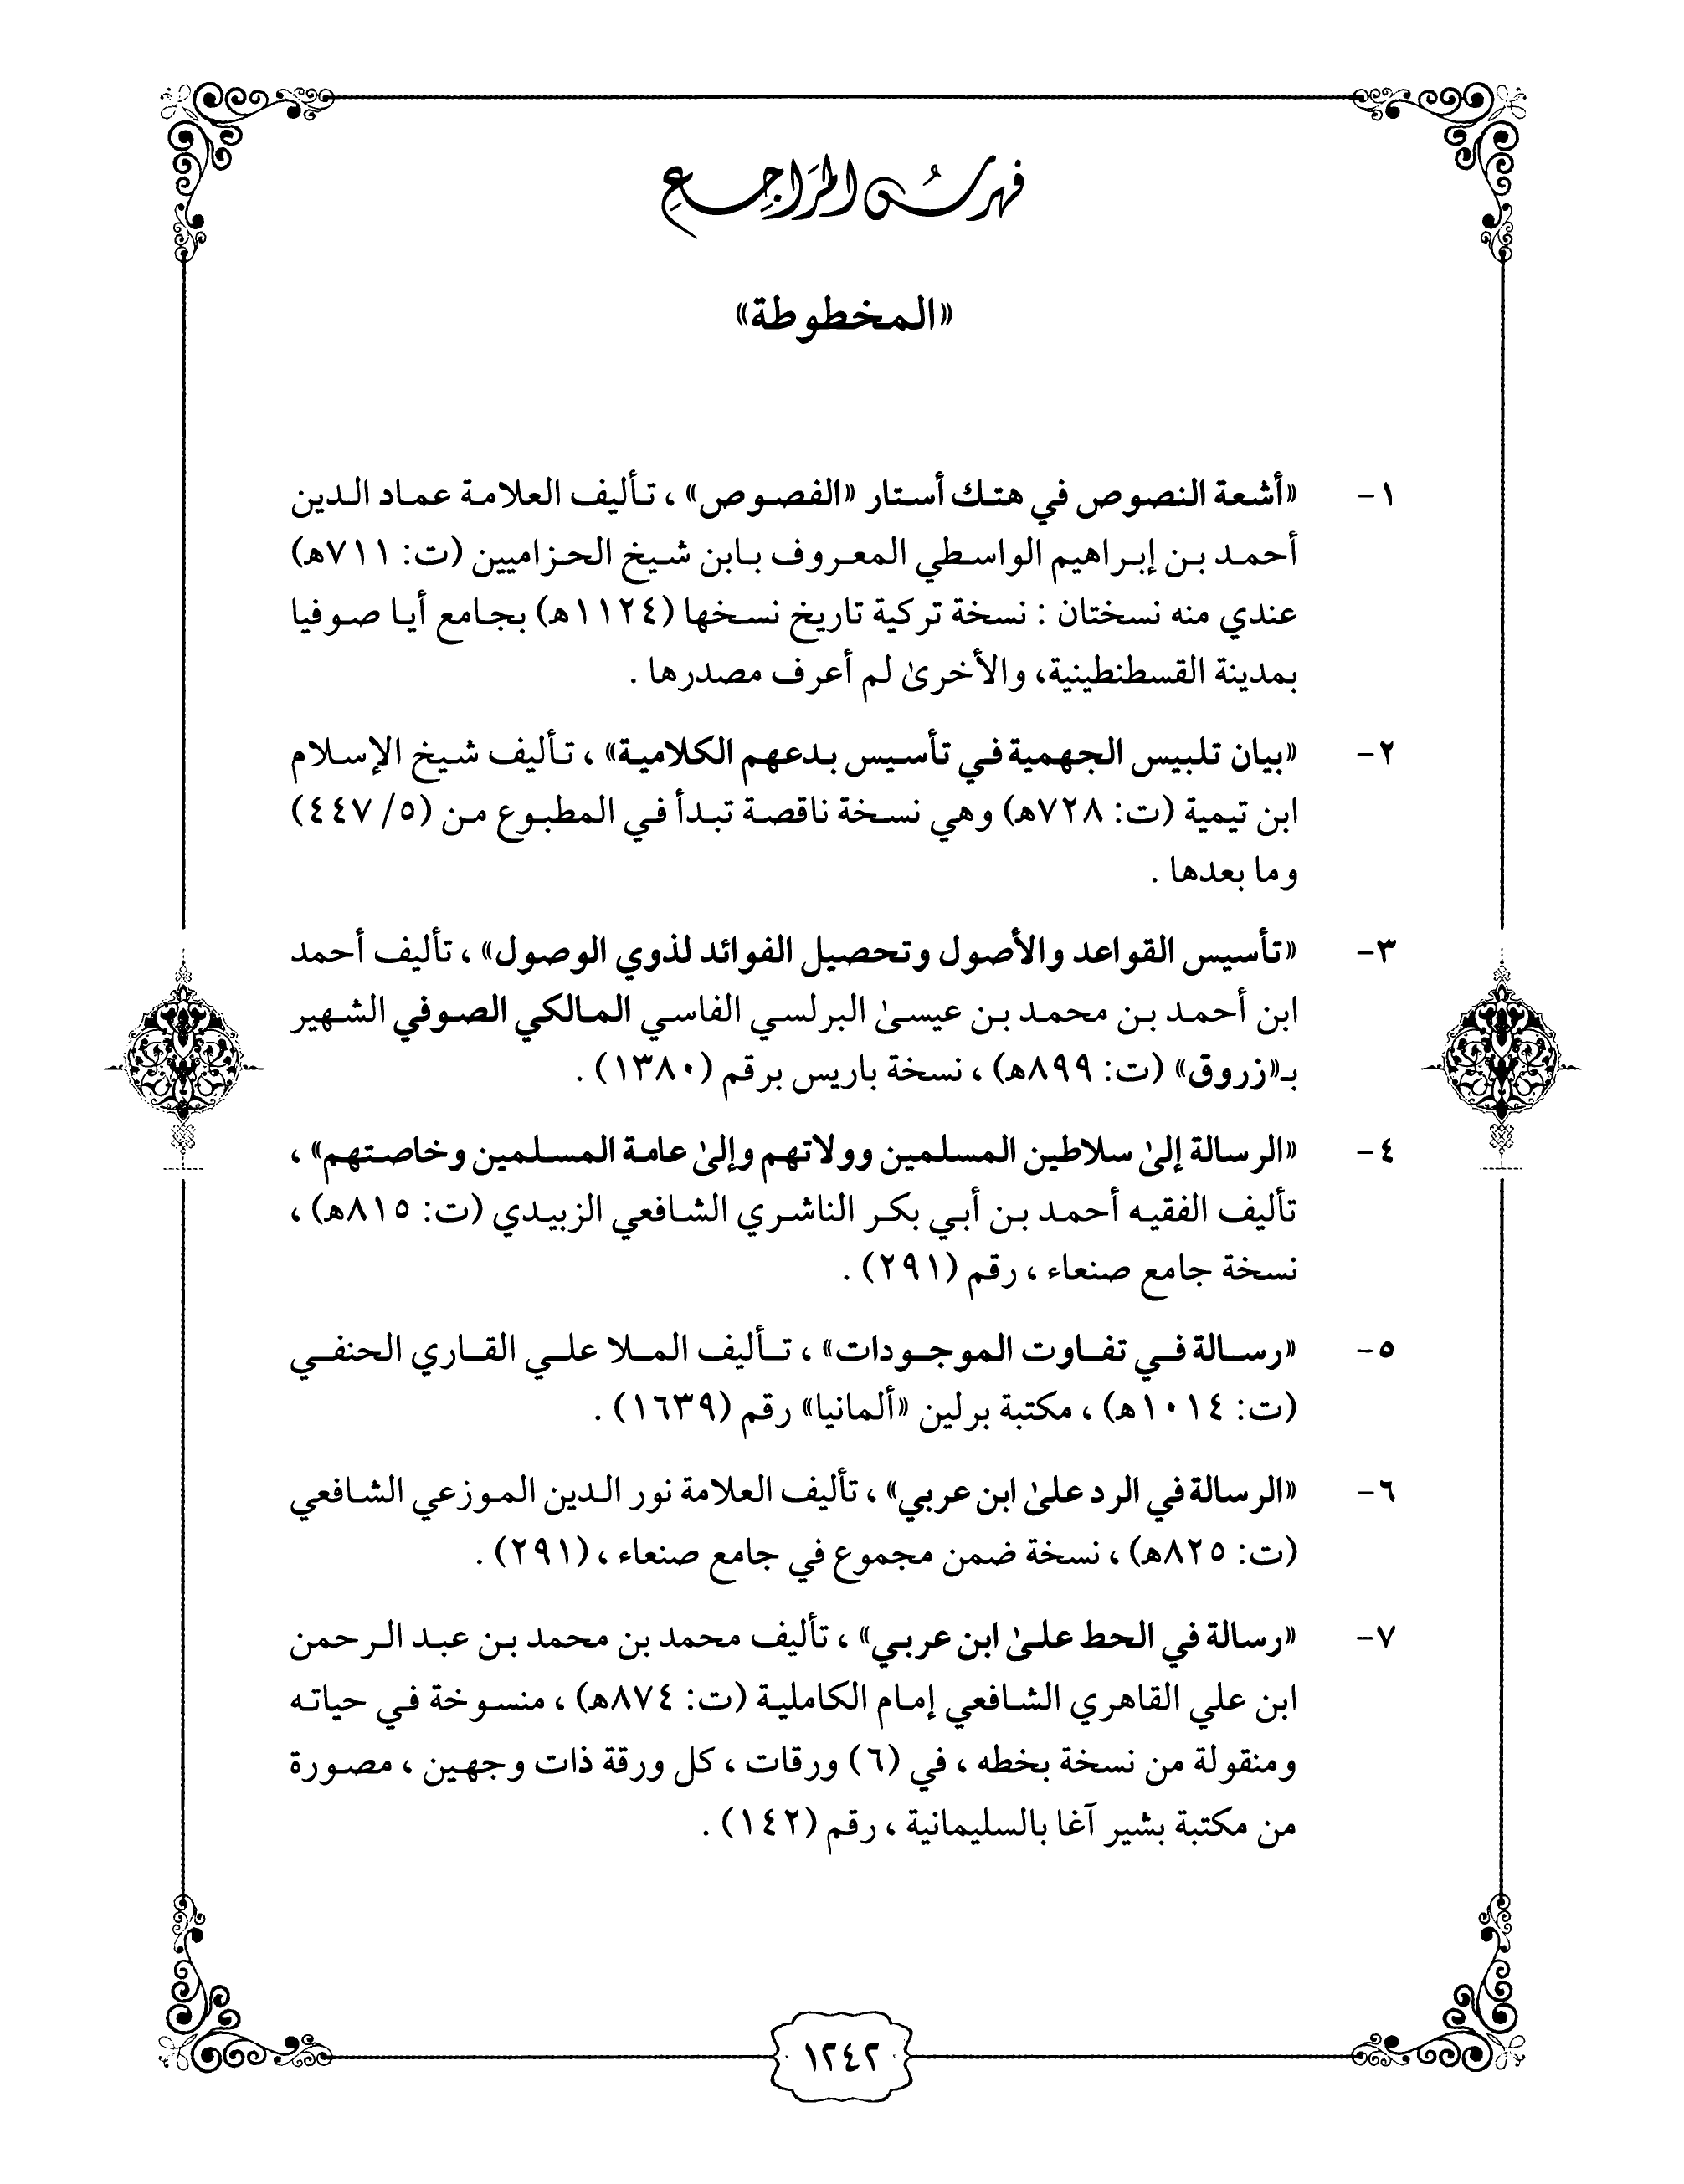 فهرس المَراجِع
«المخطوطة»
١- «أشعة النصوص في هتك أستار «الفصوص» ، تأليف العلامة عماد الدين
أحمد بن إبراهيم الواسطي المعروف بابن شيخ الحزاميين (ت: ٧١١هـ)
عندي منه نسختان : نسخة تركية تاريخ نسخها (١١٢٤هـ) بجامع أيا صوفيا
بمدينة القسطنطينية، والأخرىٰ لم أعرف مصدرها .
٢- «بيان تلبيس الجهمية في تأسيس بدعهم الكلامية» ، تأليف شيخ الإسلام
ابن تيمية (ت: ٧٢٨هـ) وهي نسخة ناقصة تبدأ في المطبوع من (٥/ ٤٤٧)
وما بعدها .
٣- «تأسيس القواعد والأصول وتحصيل الفوائد لذوي الوصول» ، تأليف أحمد
ابن أحمد بن محمد بن عيسىٰ البرلسي الفاسي المالكي الصوفي الشهير
بـ«زروق» (ت: ٨٩٩هـ) ، نسخة باريس برقم (١٣٨٠) .
٤- «الرسالة إلىٰ سلاطين المسلمين وولاتهم وإلىٰ عامة المسلمين وخاصتهم» ،
تأليف الفقيه أحمد بن أبي بكر الناشري الشافعي الزبيدي (ت: ٨١٥هـ) ،
نسخة جامع صنعاء ، رقم (٢٩١) .
٥- «رسالة في تفاوت الموجودات» ، تأليف الملا علي القاري الحنفي
(ت: ١٠١٤هـ) ، مكتبة برلين «ألمانيا» رقم (١٦٣٩) .
٦- «الرسالة في الرد علىٰ ابن عربي» ، تأليف العلامة نور الدين الموزعي الشافعي
(ت: ٨٢٥هـ) ، نسخة ضمن مجموع في جامع صنعاء ، (٢٩١) .
٧- «رسالة في الحط علىٰ ابن عربي» ، تأليف محمد بن محمد بن عبد الرحمن
ابن علي القاهري الشافعي إمام الكاملية (ت: ٨٧٤هـ) ، منسوخة في حياته
ومنقولة من نسخة بخطه ، في (٦) ورقات ، كل ورقة ذات وجهين ، مصورة
من مكتبة بشير آغا بالسليمانية ، رقم (١٤٢) .
١٢٤٢